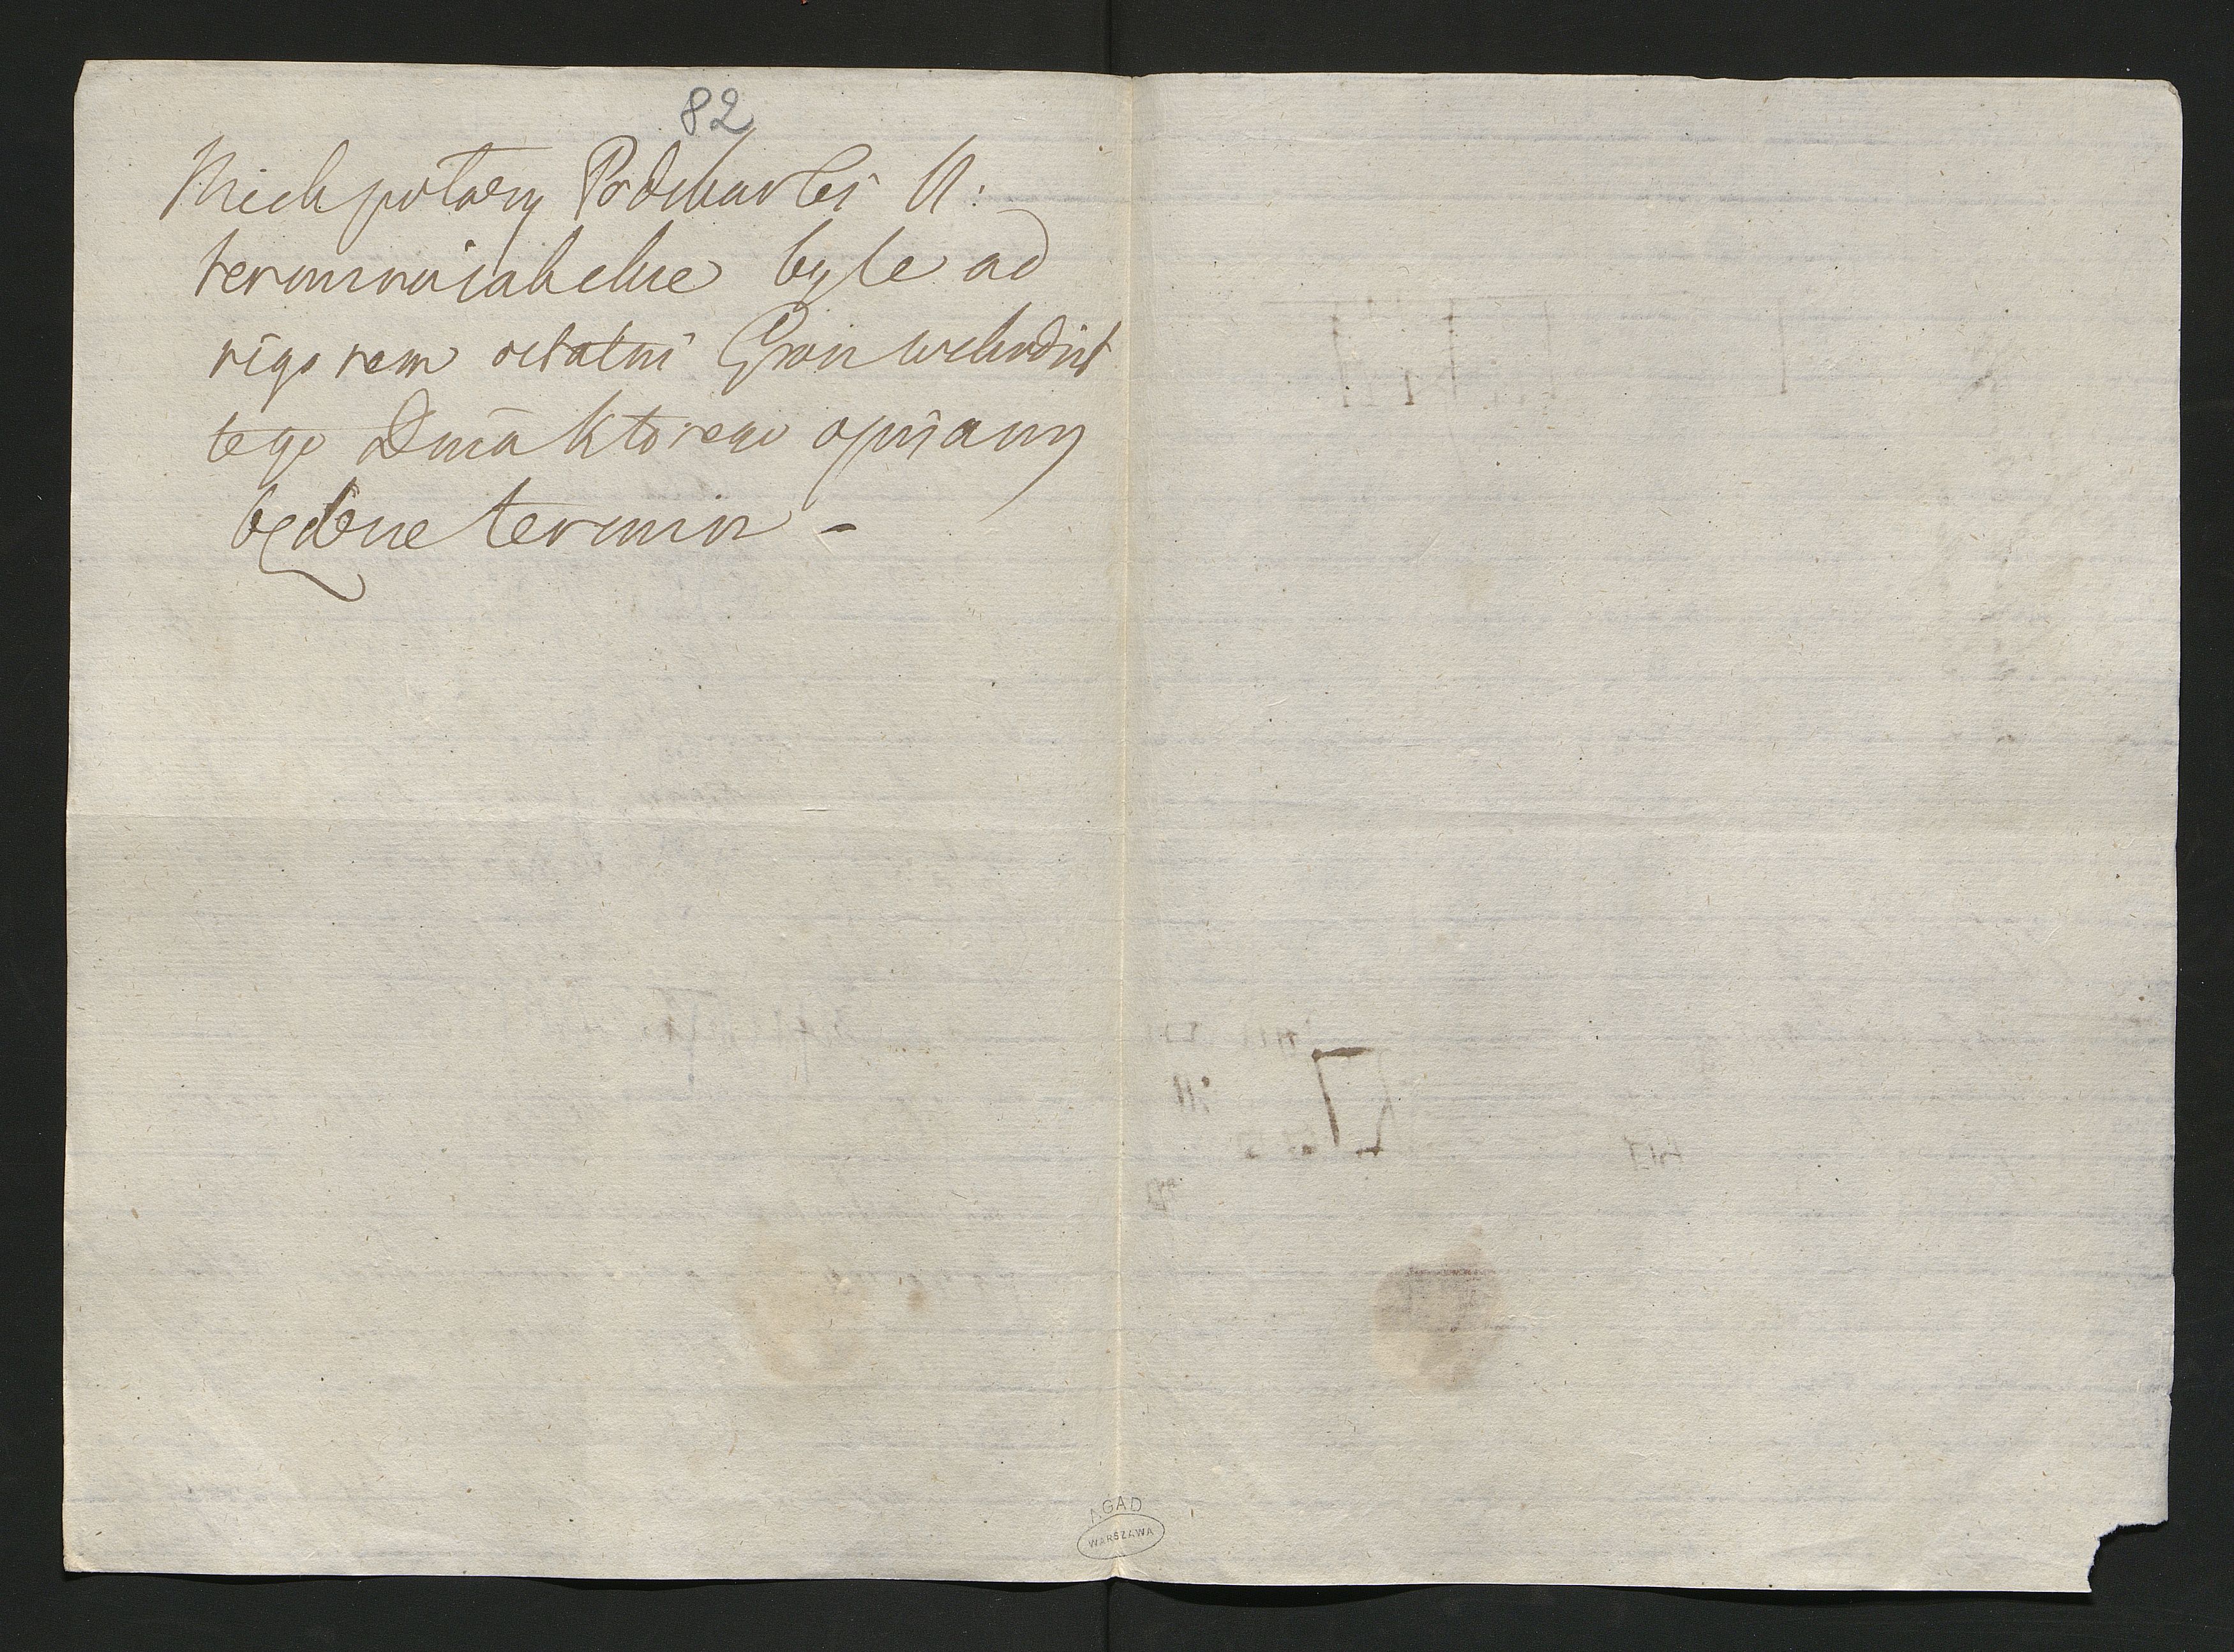 82
Niech połozy Podskarbi N:
termina iak chce byle ad
rigorem ostatni Gron wchodził
tego Dnia ktorego opisany
będzie termin –
AGAD
WARSZAWA